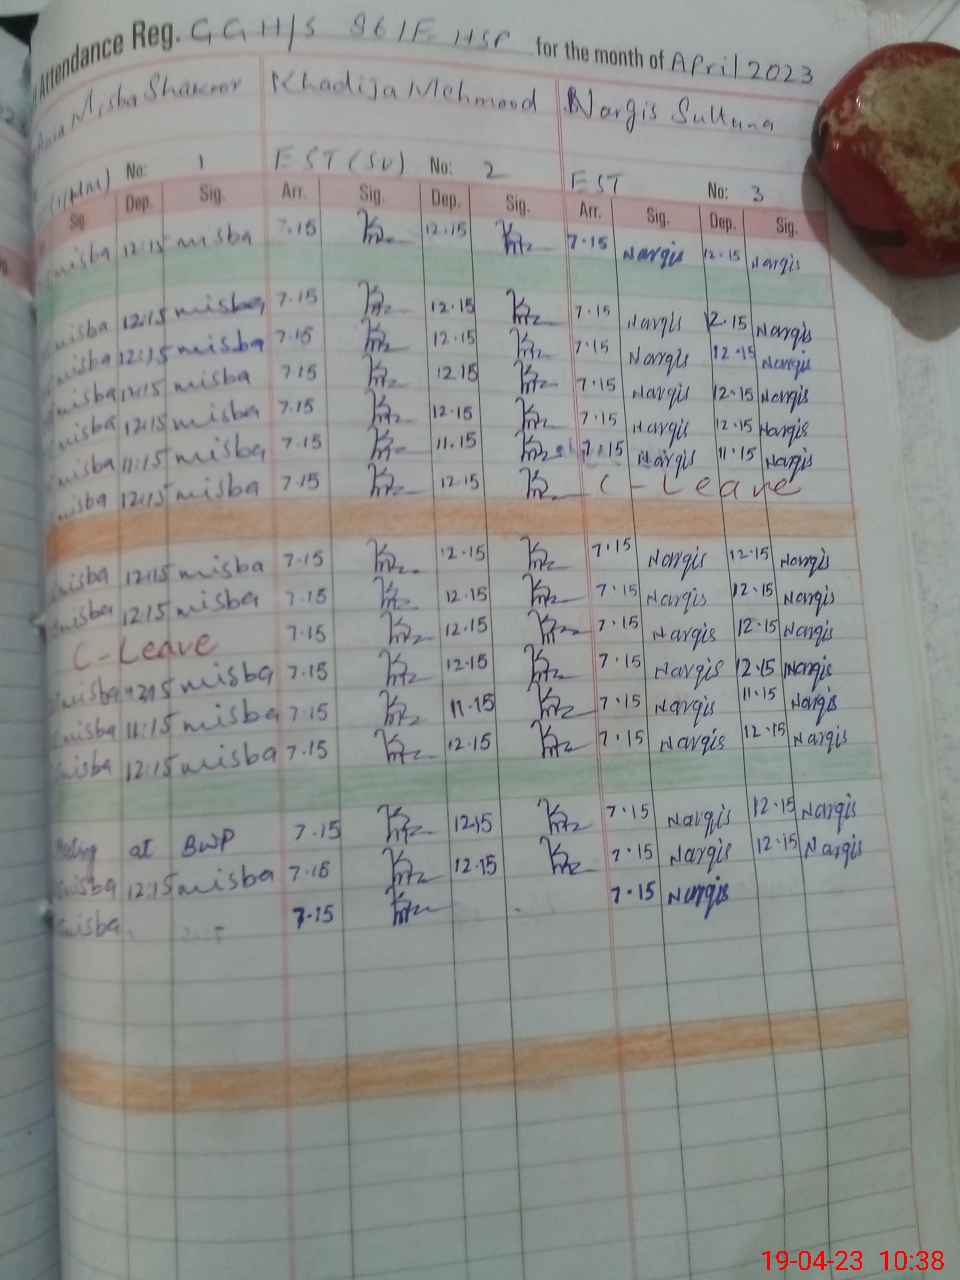 Attendance Reg. GGH/S 96/F HSP for the month of April 2023
Misba Shakoor Khadija Mehmood Nargis Sultana
(HM) No: 1 EST (SV) No: 2 EST No: 3
Sig. Dep. Sig. Arr. Sig. Dep. Sig. Arr. Sig. Dep. Sig.
misba 12:15 misba 7.15 12.15 7.15 Nargis 12.15 Nargis
misba 12:15 misba 7.15 12.15 7.15 Nargis 12.15 Nargis
misba 12:15 misba 7.15 12.15 7.15 Nargis 12.15 Nargis
misba 12:15 misba 7.15 12.15 7.15 Nargis 12.15 Nargis
misba 12:15 misba 7.15 12.15 7.15 Nargis 12.15 Nargis
misba 11:15 misba 7.15 11.15 7.15 Nargis 11.15 Nargis
misba 12:15 misba 7.15 12.15 C-Leave
misba 12:15 misba 7.15 12.15 7.15 Nargis 12.15 Nargis
misba 12:15 misba 7.15 12.15 7.15 Nargis 12.15 Nargis
C-Leave 7.15 12.15 7.15 Nargis 12.15 Nargis
misba 12:15 misba 7.15 12.15 7.15 Nargis 12.15 Nargis
misba 11:15 misba 7.15 11.15 7.15 Nargis 11.15 Nargis
misba 12:15 misba 7.15 12.15 7.15 Nargis 12.15 Nargis
at BWP 7.15 12.15 7.15 Nargis 12.15 Nargis
misba 12:15 misba 7.15 12.15 7.15 Nargis 12.15 Nargis
misba 7.15 7.15 Nargis
19-04-23 10:38